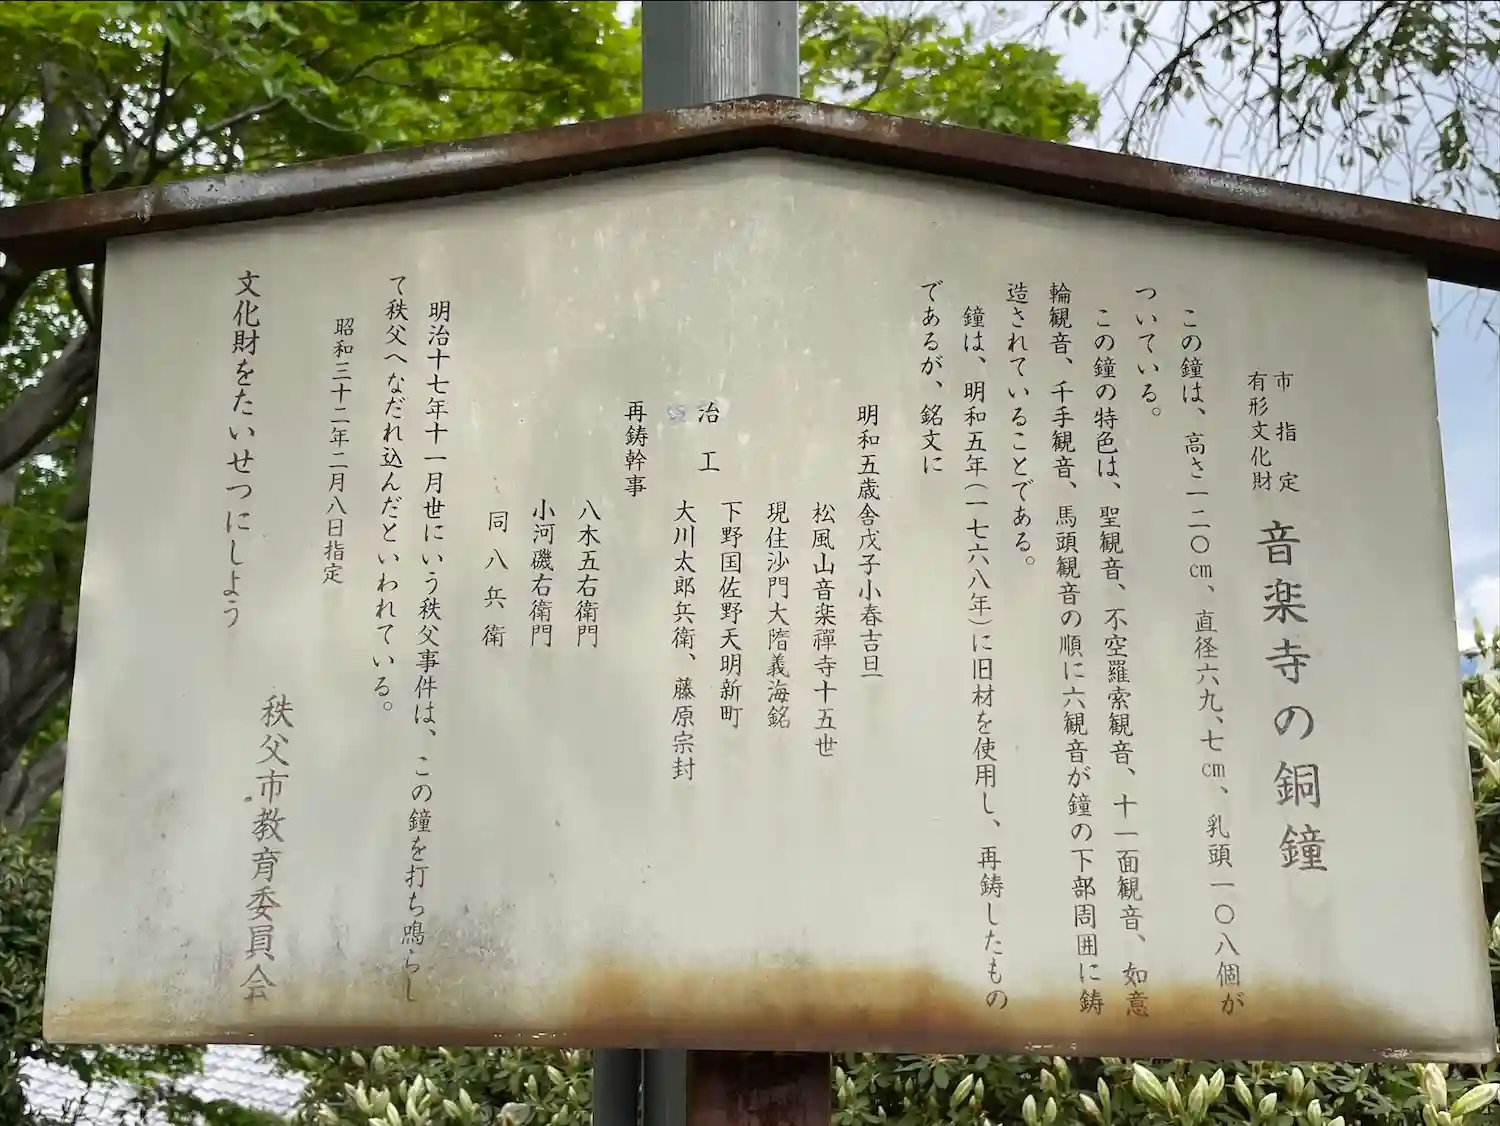 市指定
有形文化財
音楽寺の銅鐘
この鐘は、高さ一二〇cm、直径六九、七cm、乳頭一〇八個が
ついている。
この鐘の特色は、聖観音、不空羅索観音、十一面観音、如意
輪観音、千手観音、馬頭観音の順に六観音が鐘の下部周囲に鋳
造されていることである。
鐘は、明和五年(一七六八年)に旧材を使用し、再鋳したもの
であるが、銘文に
明和五歳舎戊子小春吉旦
松風山音楽禪寺十五世
現住沙門大隋義海銘
下野国佐野天明新町
冶工
大川太郎兵衛、藤原宗封
再鋳幹事
八木五右衛門
小河磯右衛門
同八兵衛
明治十七年十一月世にいう秩父事件は、この鐘を打ち鳴らし
て秩父へなだれ込んだといわれている。
昭和三十二年二月八日指定
文化財をたいせつにしよう
秩父市教育委員会